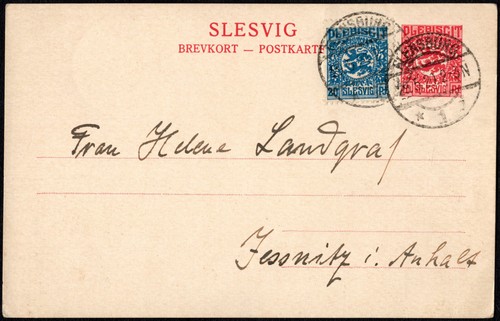 SLESVIG
BREVKORT – POSTKARTE
PLEBISCIT
SLESVIG
20 PF.
PLEBISCIT
SLESVIG
PF.
FLENSBURG
FLENSBURG
* 1
Frau Helene Landgraf
Jessnitz i. Anhalt